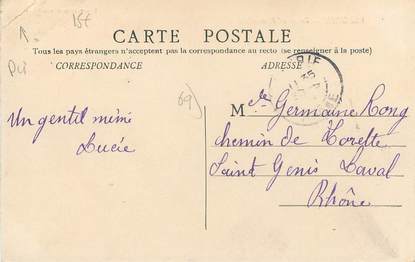 15f
CARTE POSTALE
Tous les pays étrangers n'acceptent pas la correspondance au recto (se renseigner à la poste)
CORRESPONDANCE
ADRESSE
69)
Un gentil mimi
Lucie
Melle Germaine Rong
chemin de
Saint Genis Laval
Rhône